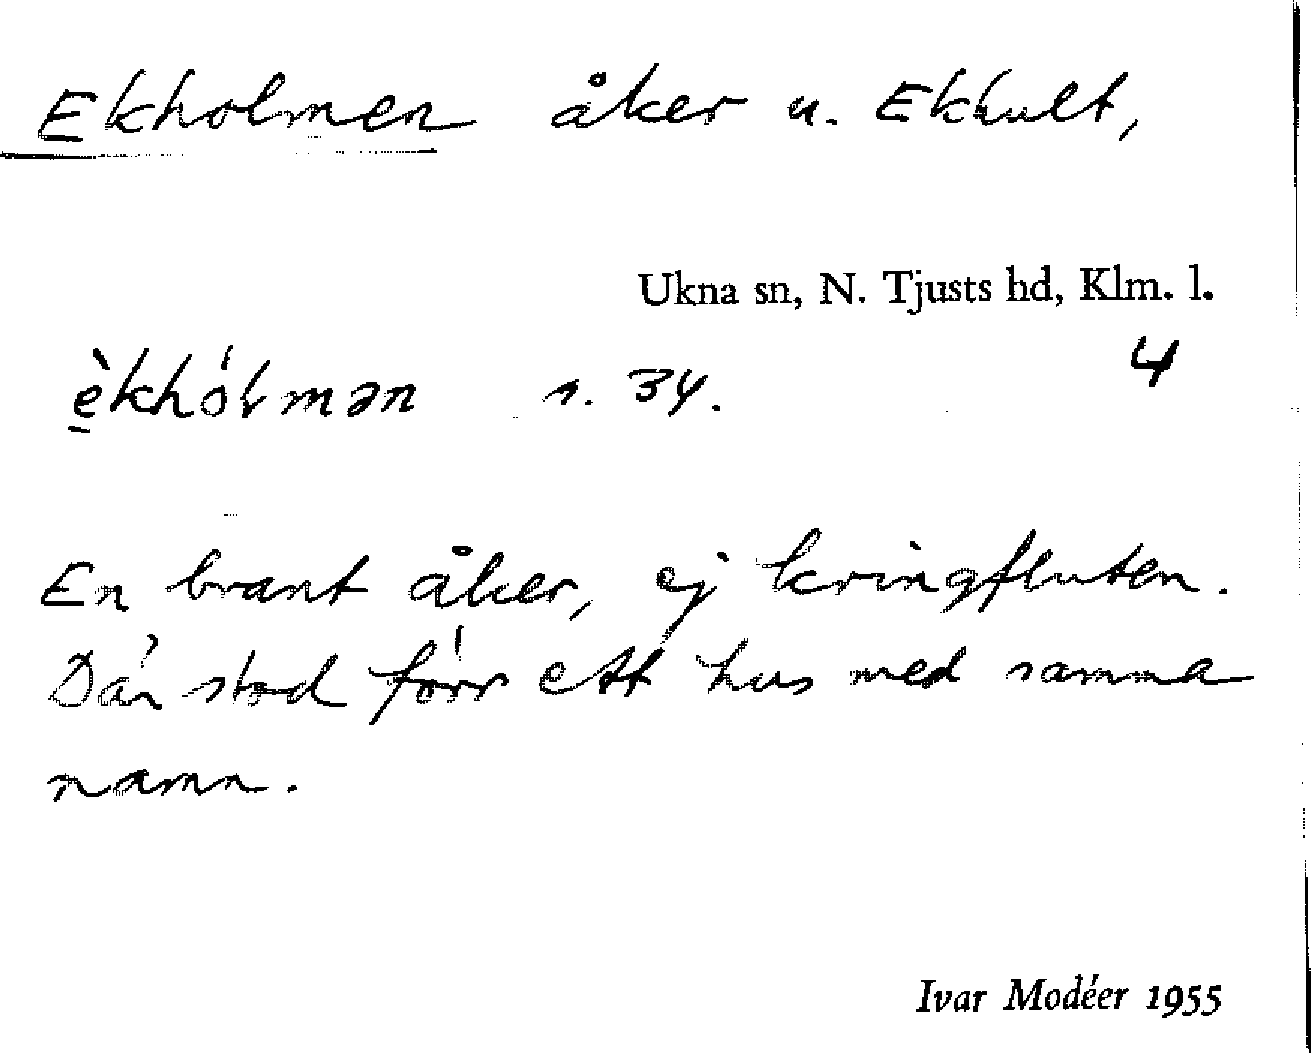 Ekholmen åker u. Ekhult,
Ukna sn, N. Tjusts hd, Klm. l.
4
s. 34.
En brant åker, ej kringfluten.
Där stod förr ett hus med samma
namn.
Ivar Modéer 1955